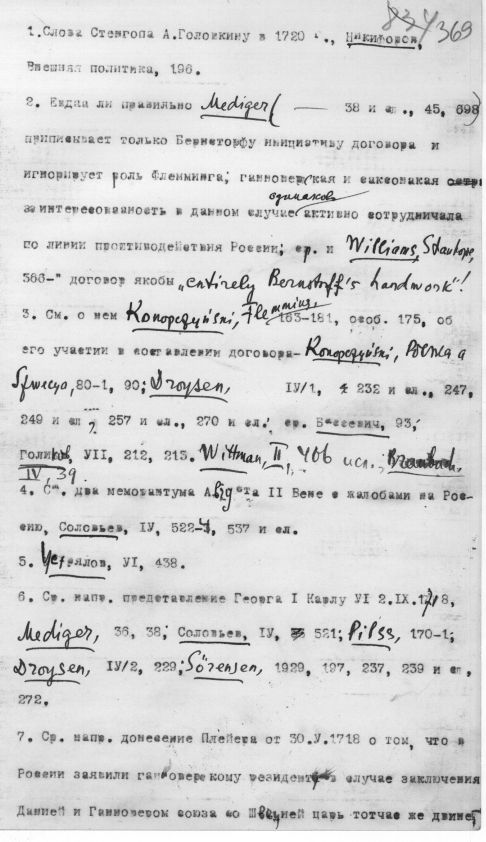 369
1.Слова Стенгопа А.Головкину в 1720 г., Никифоров,
Внешняя политика, 196.
2. Едва ли правильно Mediger ( — 38 и сл., 45, 698)
приписывает только Бернсторфу инициативу договора и
игнорирует роль Флемминга; ганноверская и саксонская
одинаково
заинтересованность в данном случае активно сотрудничала
по линии противодействия России; ср. и Williams, Stanhope,
366-" договор якобы „entirely Bernstorff's handwork"!
3. См. о нем Konopczyński, Flemming, 163-181, особ. 175, об
его участии в составлении договора- Konopczyński, Polska a
Szwecja, 80-1, 90; Droysen, IV/1, 232 и сл., 247,
249 и сл., 257 и сл., 270 и сл.; ср. Бассевич, 93;
Голиков, УII, 212, 213. Wittman, II, 466 исл., Braubach,
IV, 39.
4. См. два меморандума Августа II Вене с жалобами на Рос-
сию, Соловьев, IУ, 522-4, 537 и сл.
5. Устрялов, УI, 438.
6. Ср. напр. представление Георга I Карлу УI 2.IX.1718,
Mediger, 36, 38; Соловьев, IУ, 521; Pilss, 170-1;
Droysen, IУ/2, 229; Sörensen, 1929, 197, 237, 239 и сл,
272.
7. Ср. напр. донесение Плейера от 30.У.1718 о том, что в
России заявили ганноверскому резиденту в случае заключения
Данией и Ганновером союза со Швецией царь тотчас же двинет